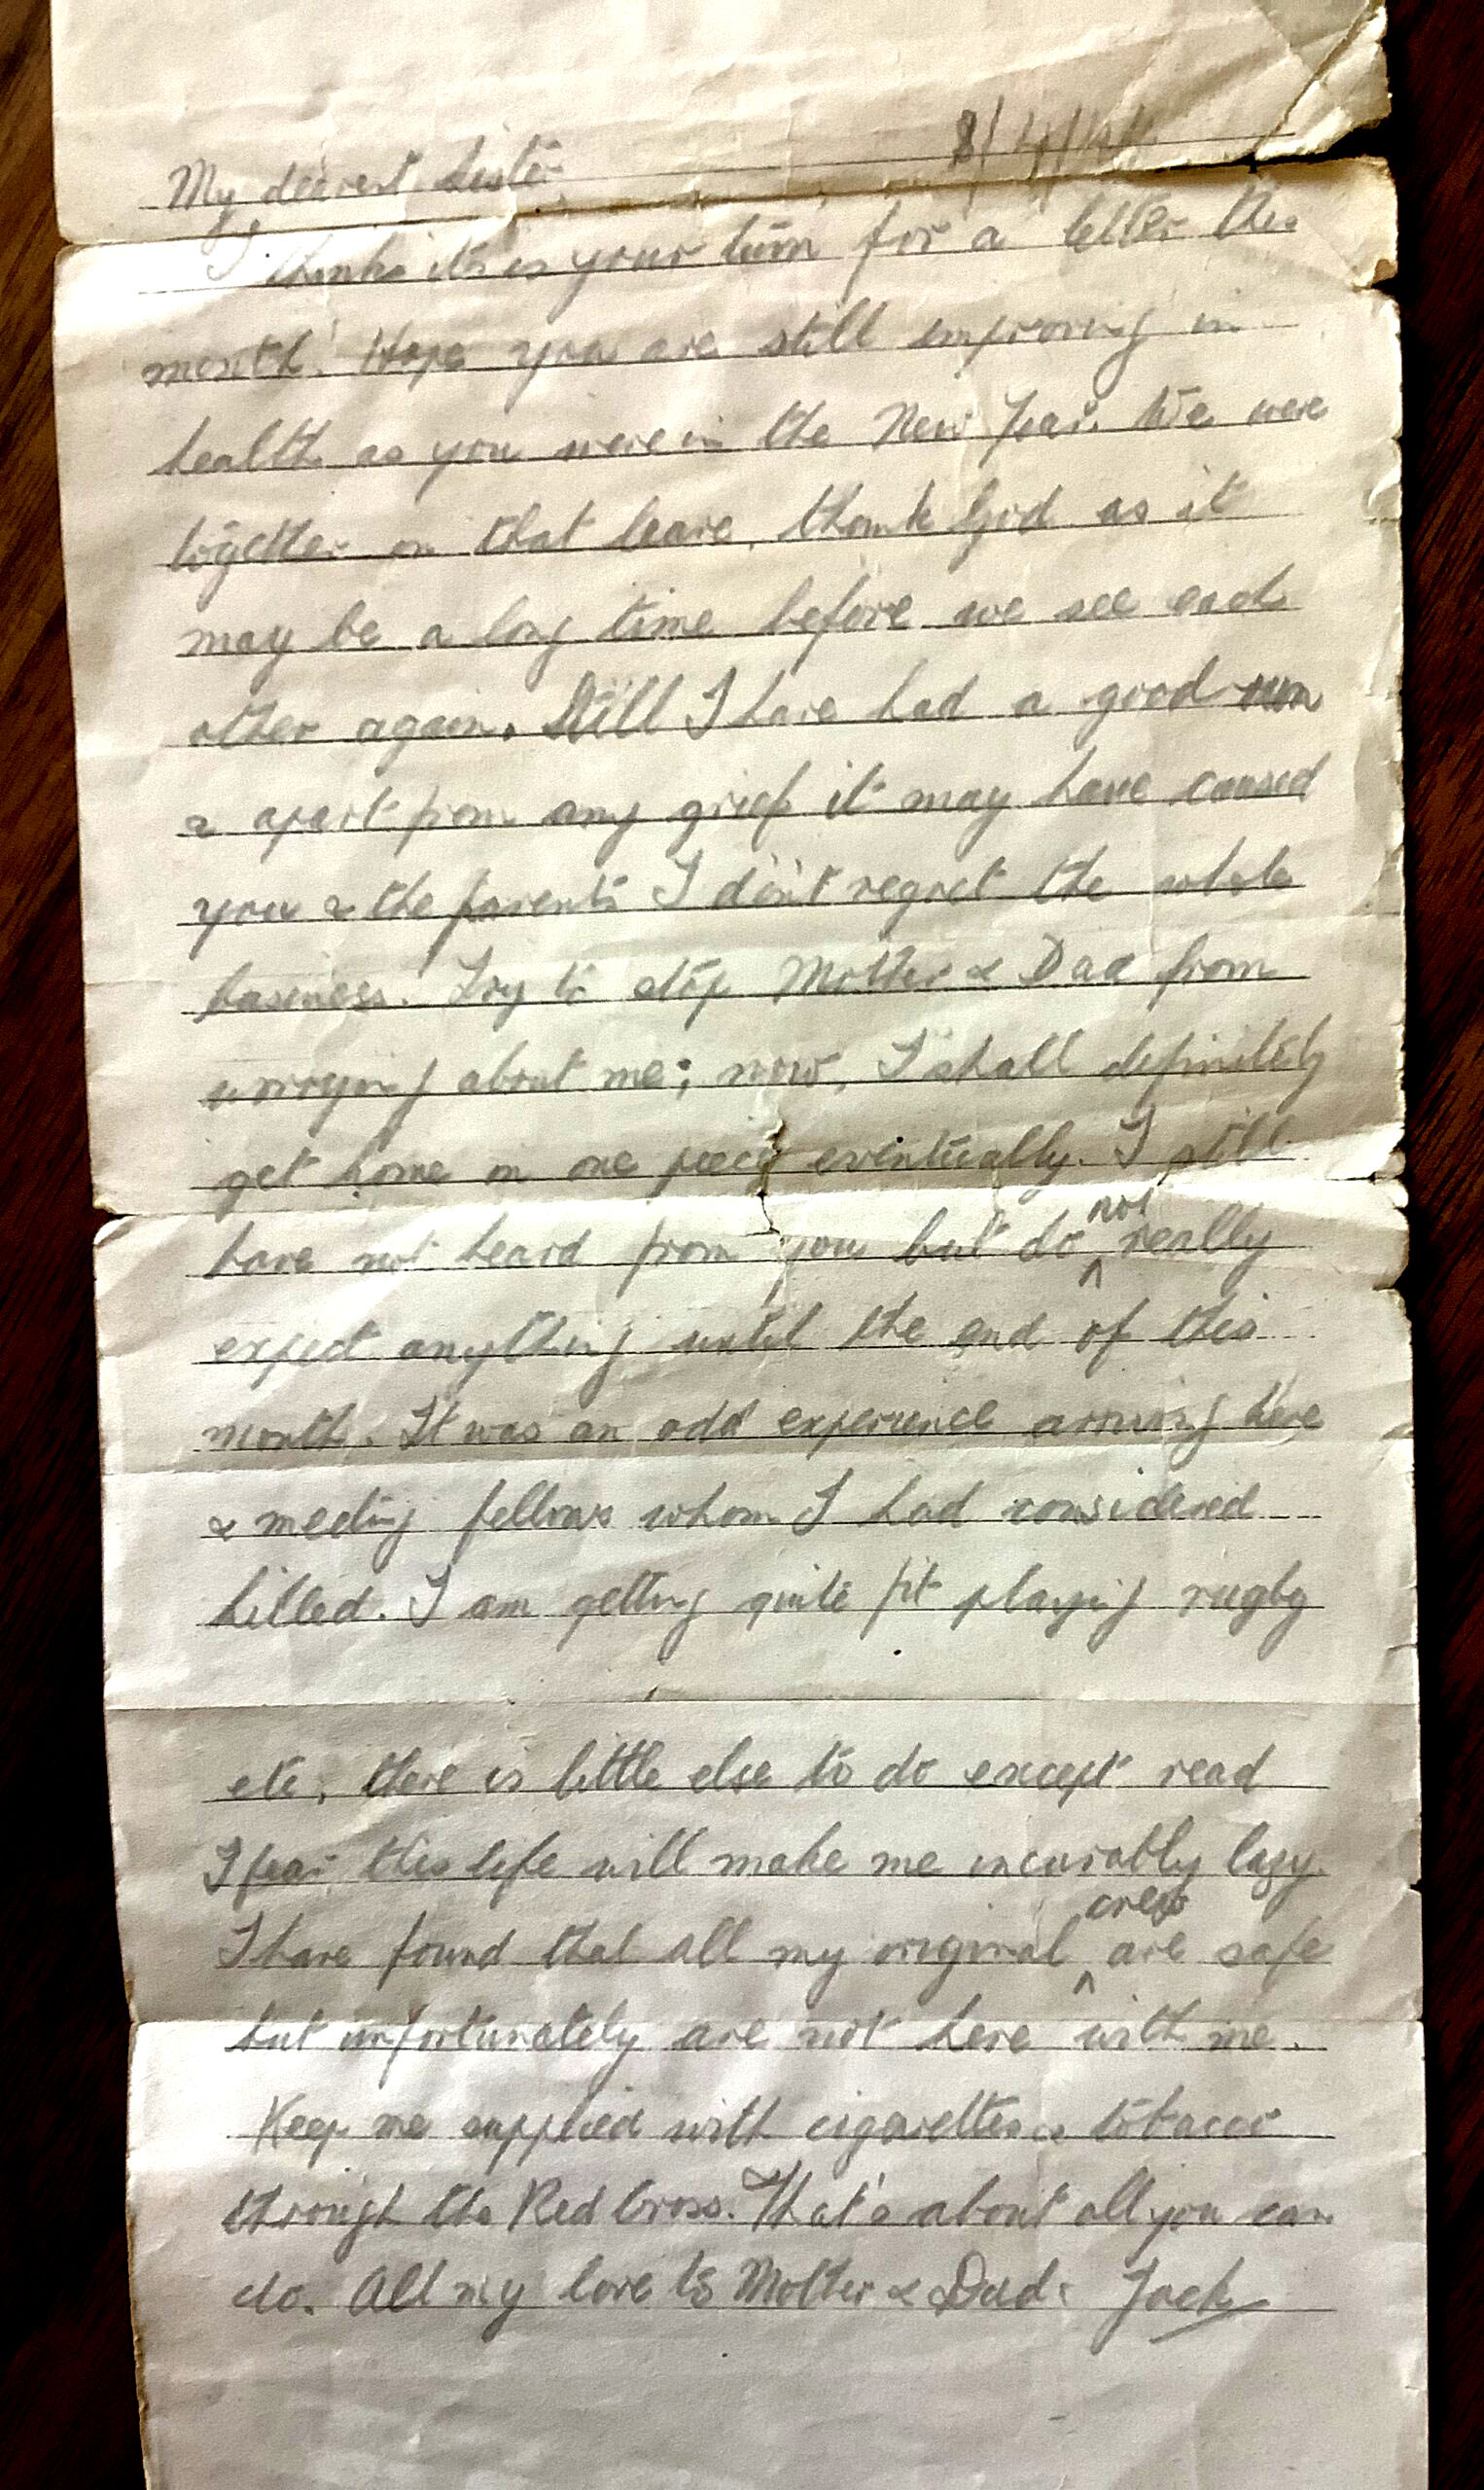 8/4/44
My dearest Sister,
I think it is your turn for a letter this
month. Hope you are still improving in
health as you were in the New Year. We were
together on that leave, thank God as it
may be a long time before we see each
other again. Still I have had a good run
& apart from any grief it may have caused
you & the parents I don't regret the whole
business. Try to stop Mother & Dad from
worrying about me; now, I shall definitely
get home in one piece eventually. I still
have not heard from you but do not really
expect anything until the end of this
month. It was an odd experience arriving here
& meeting fellows whom I had considered
killed. I am getting quite fit playing rugby
etc, there is little else to do except read
I fear this life will make me incurably lazy.
I have found that all my original crew are safe
but unfortunately are not here with me.
Keep me supplied with cigarettes & tobacco
through the Red Cross. That's about all you can
do. All my love to Mother & Dad. Jack